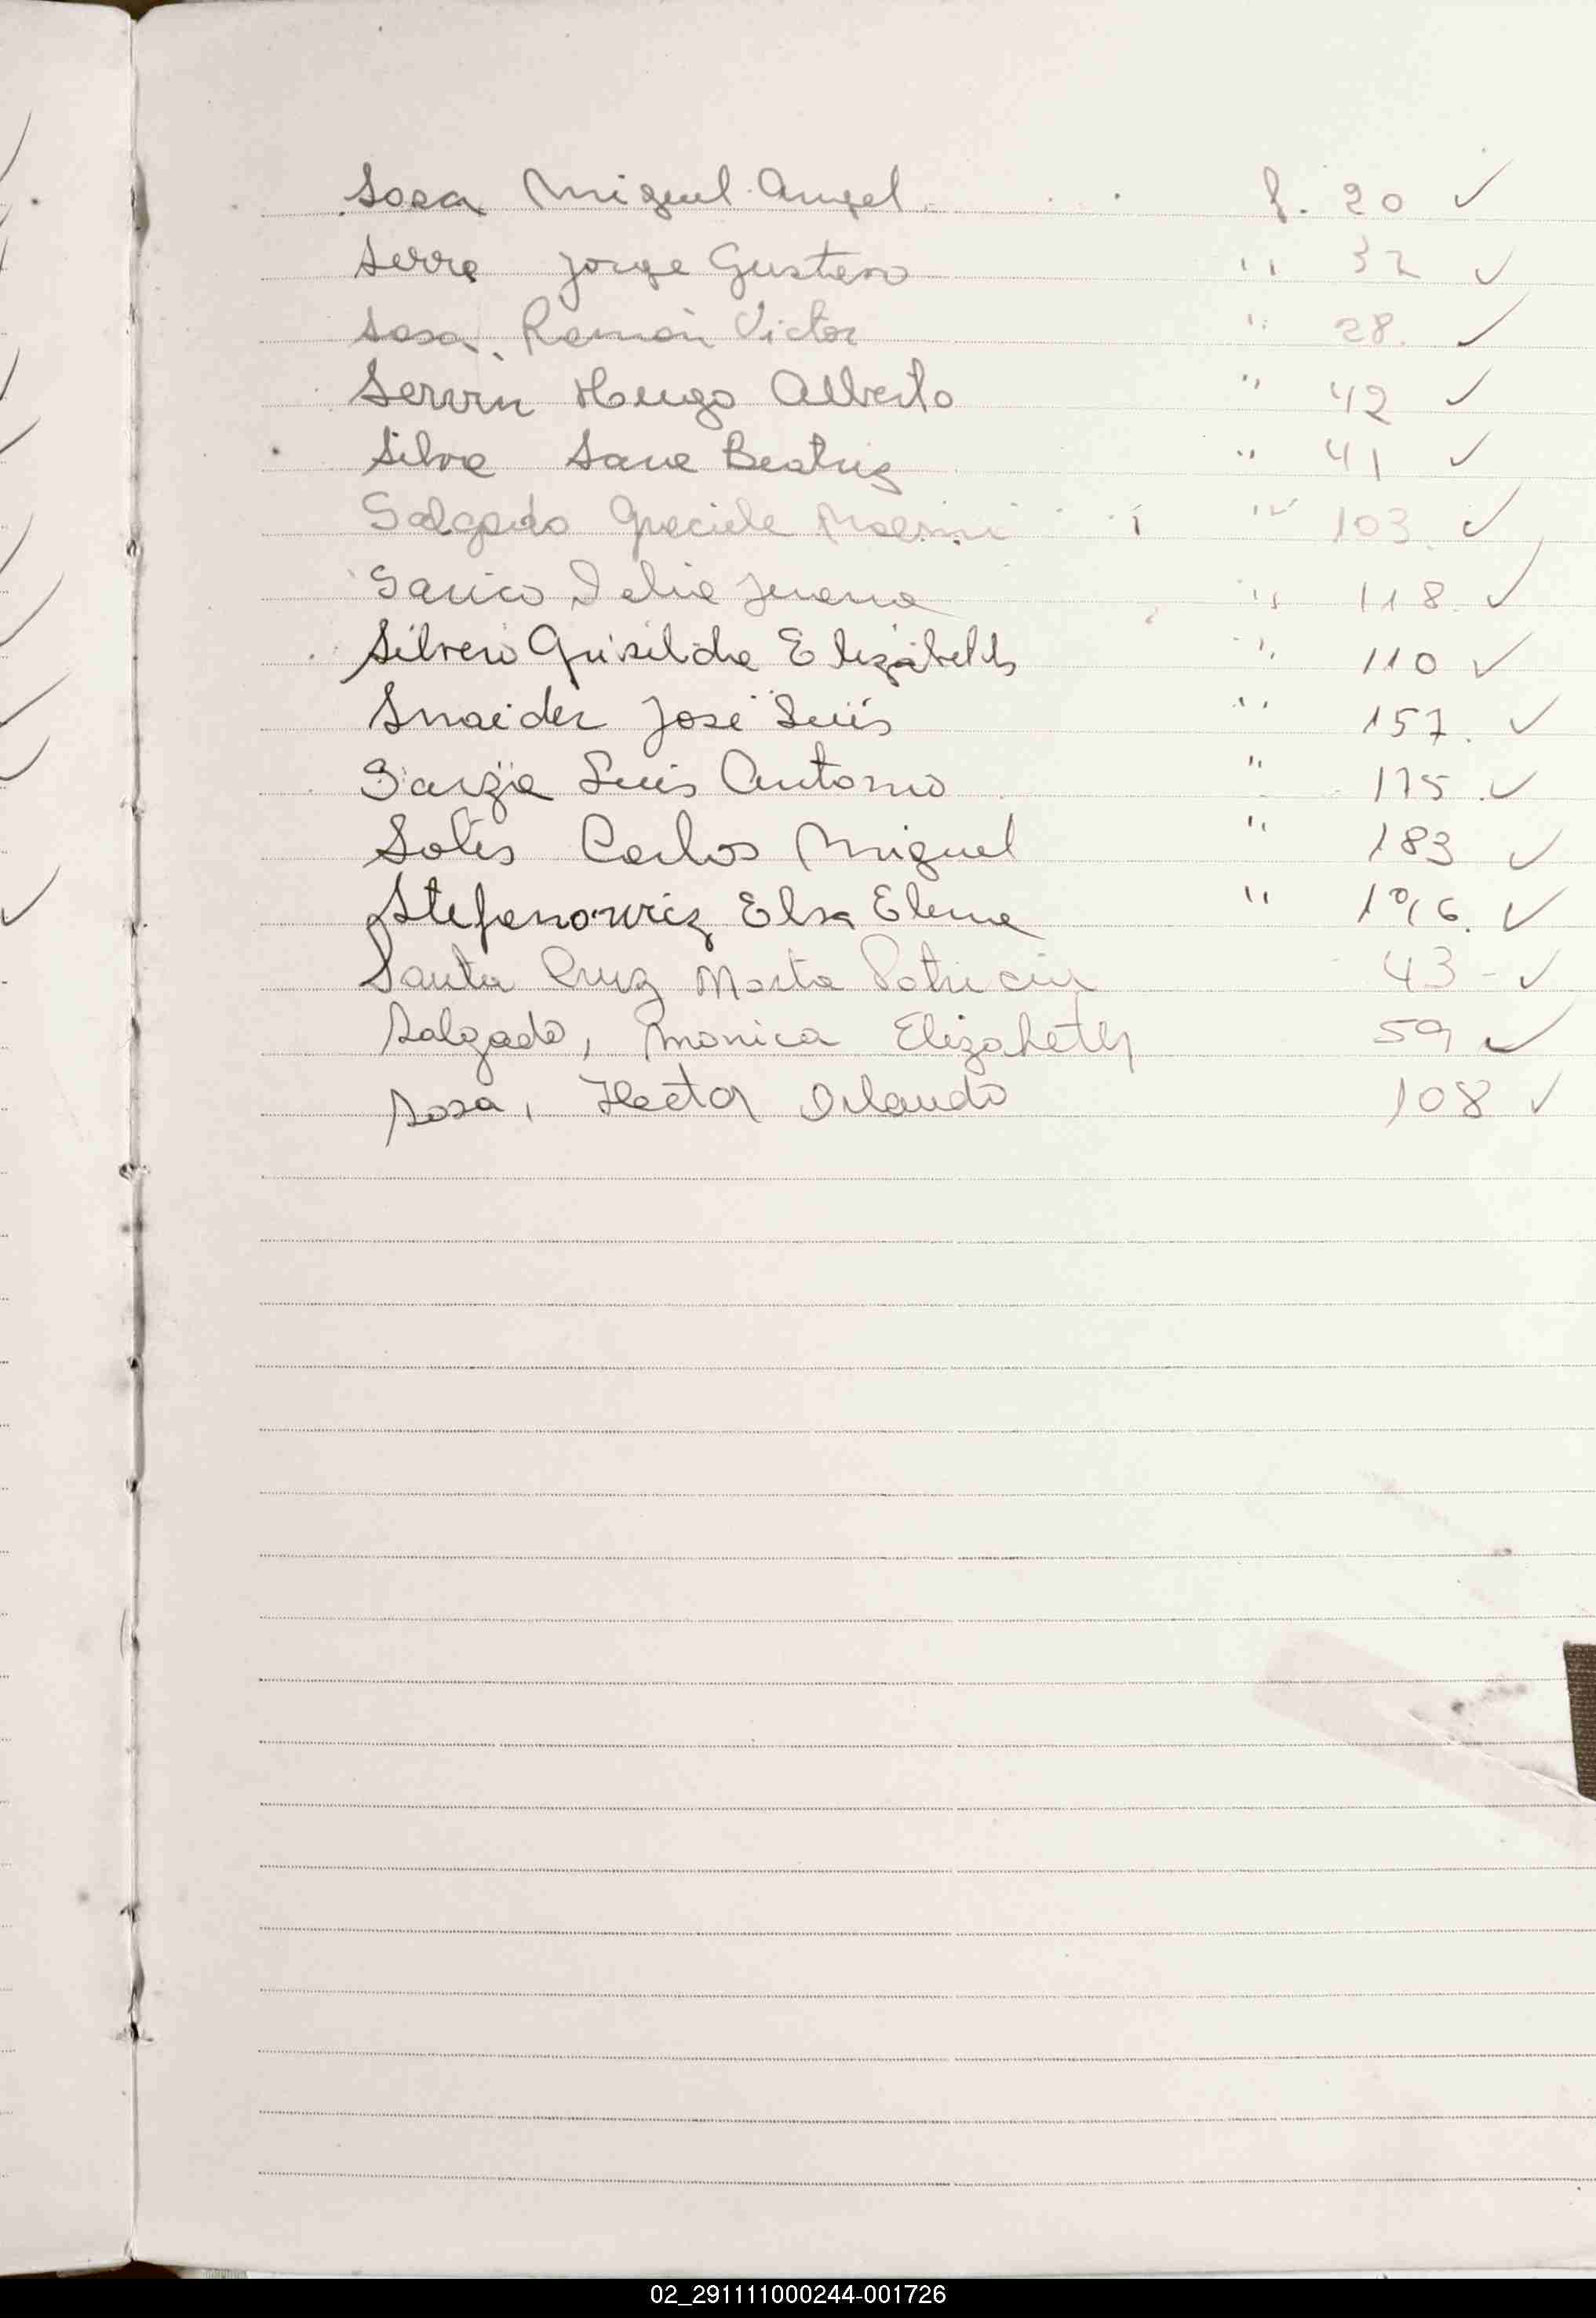 Sosa Miguel Angel f. 20 ✓
Serra Jorge Gustavo " 32 ✓
Sosa, Ramón Victor " 28. ✓
Servin Hugo Alberto " 42 ✓
Silva Sara Beatriz " 41 ✓
Salgado Graciela Noemi " 103. ✓
Sarico Delia " 118. ✓
Silvero Griselda Elizabeth " 110 ✓
Snaider José Luis " 157. ✓
Luis Antonio " 175 ✓
Solis Carlos Miguel " 183 ✓
Stefanowicz Elsa Elena " ✓
Santa Cruz Marta Patricia 43 - ✓
Salgado, Monica Elizabeth 59 ✓
Sosa, Hector Orlando 108 ✓
02_291111000244-001726